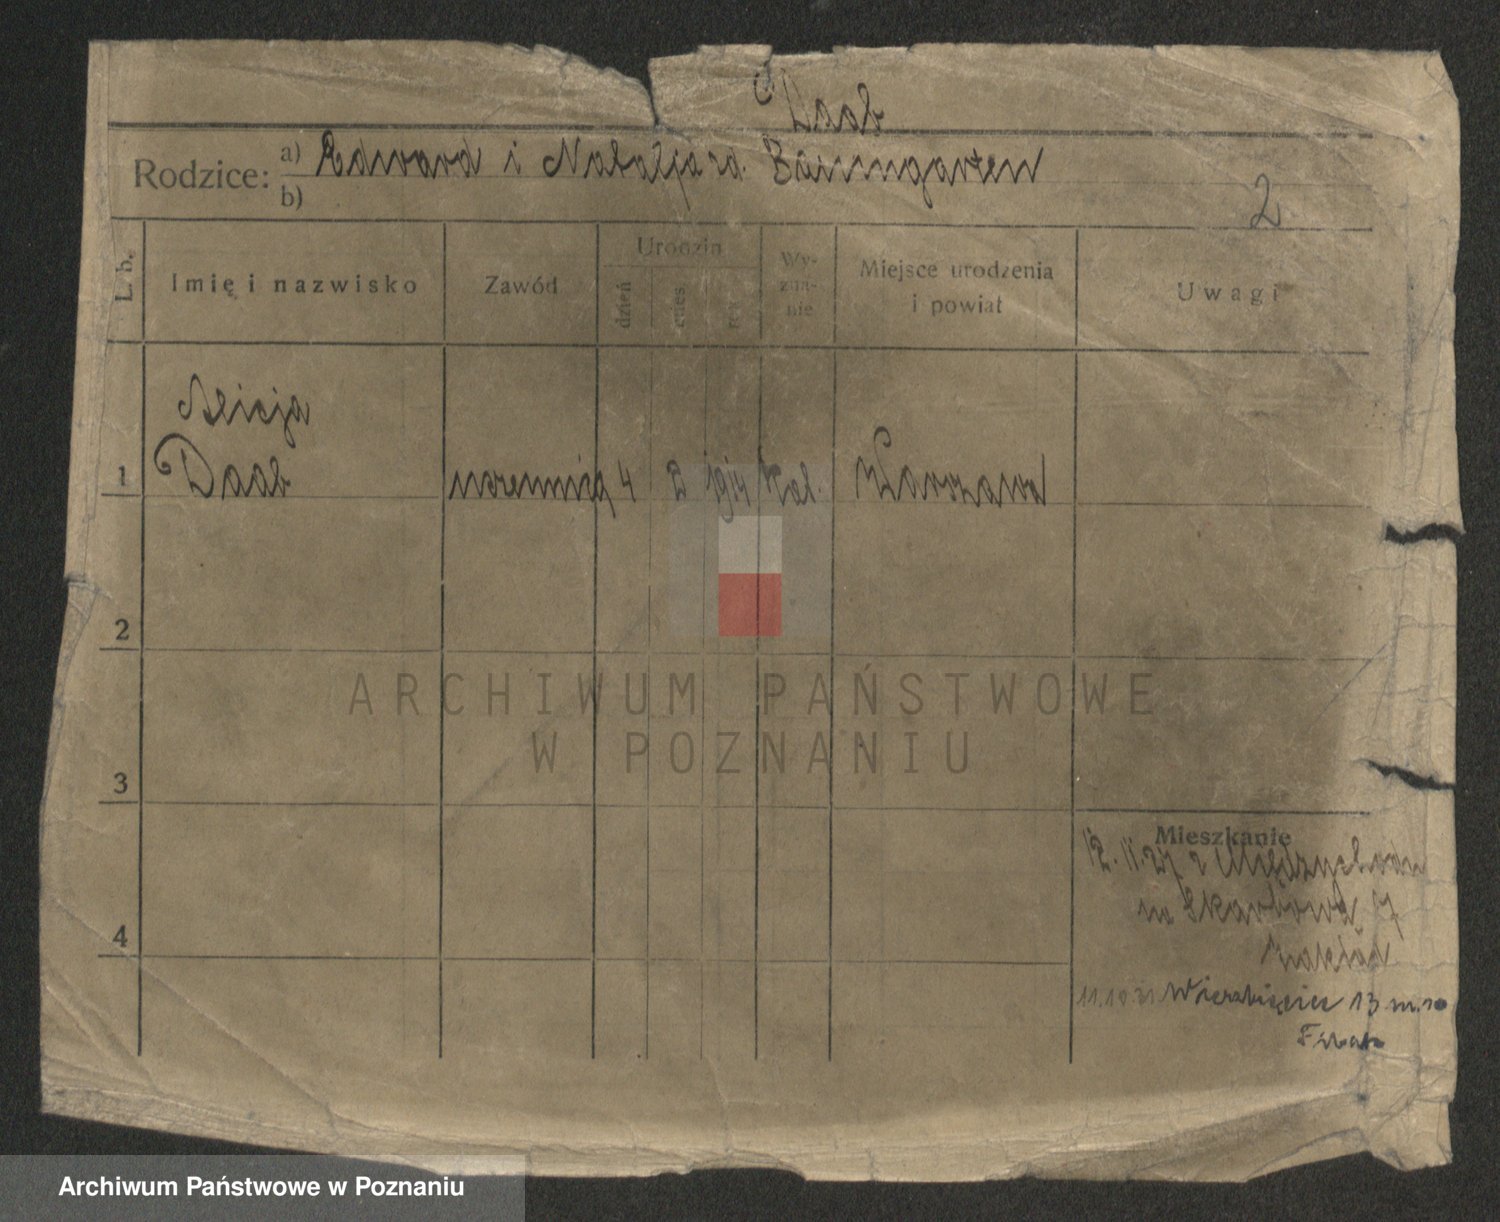 Daab
Rodzice: a) Edward i Natalja zd. Baumgarten
b)
2
L. b. Imię i nazwisko Zawód Urodzin dzień mies. rok Wyznanie Miejsce urodzenia i powiat Uwagi
Alicja
1 Daab uczennica 4 2 1914 kat. Warszawa
2
3
4
Mieszkanie
12.11.27 z Międzychodu
na Skarbowa 17
11.10 31 Wierzbięcice 13 m. 10
ARCHIWUM PAŃSTWOWE
W POZNANIU
Archiwum Państwowe w Poznaniu